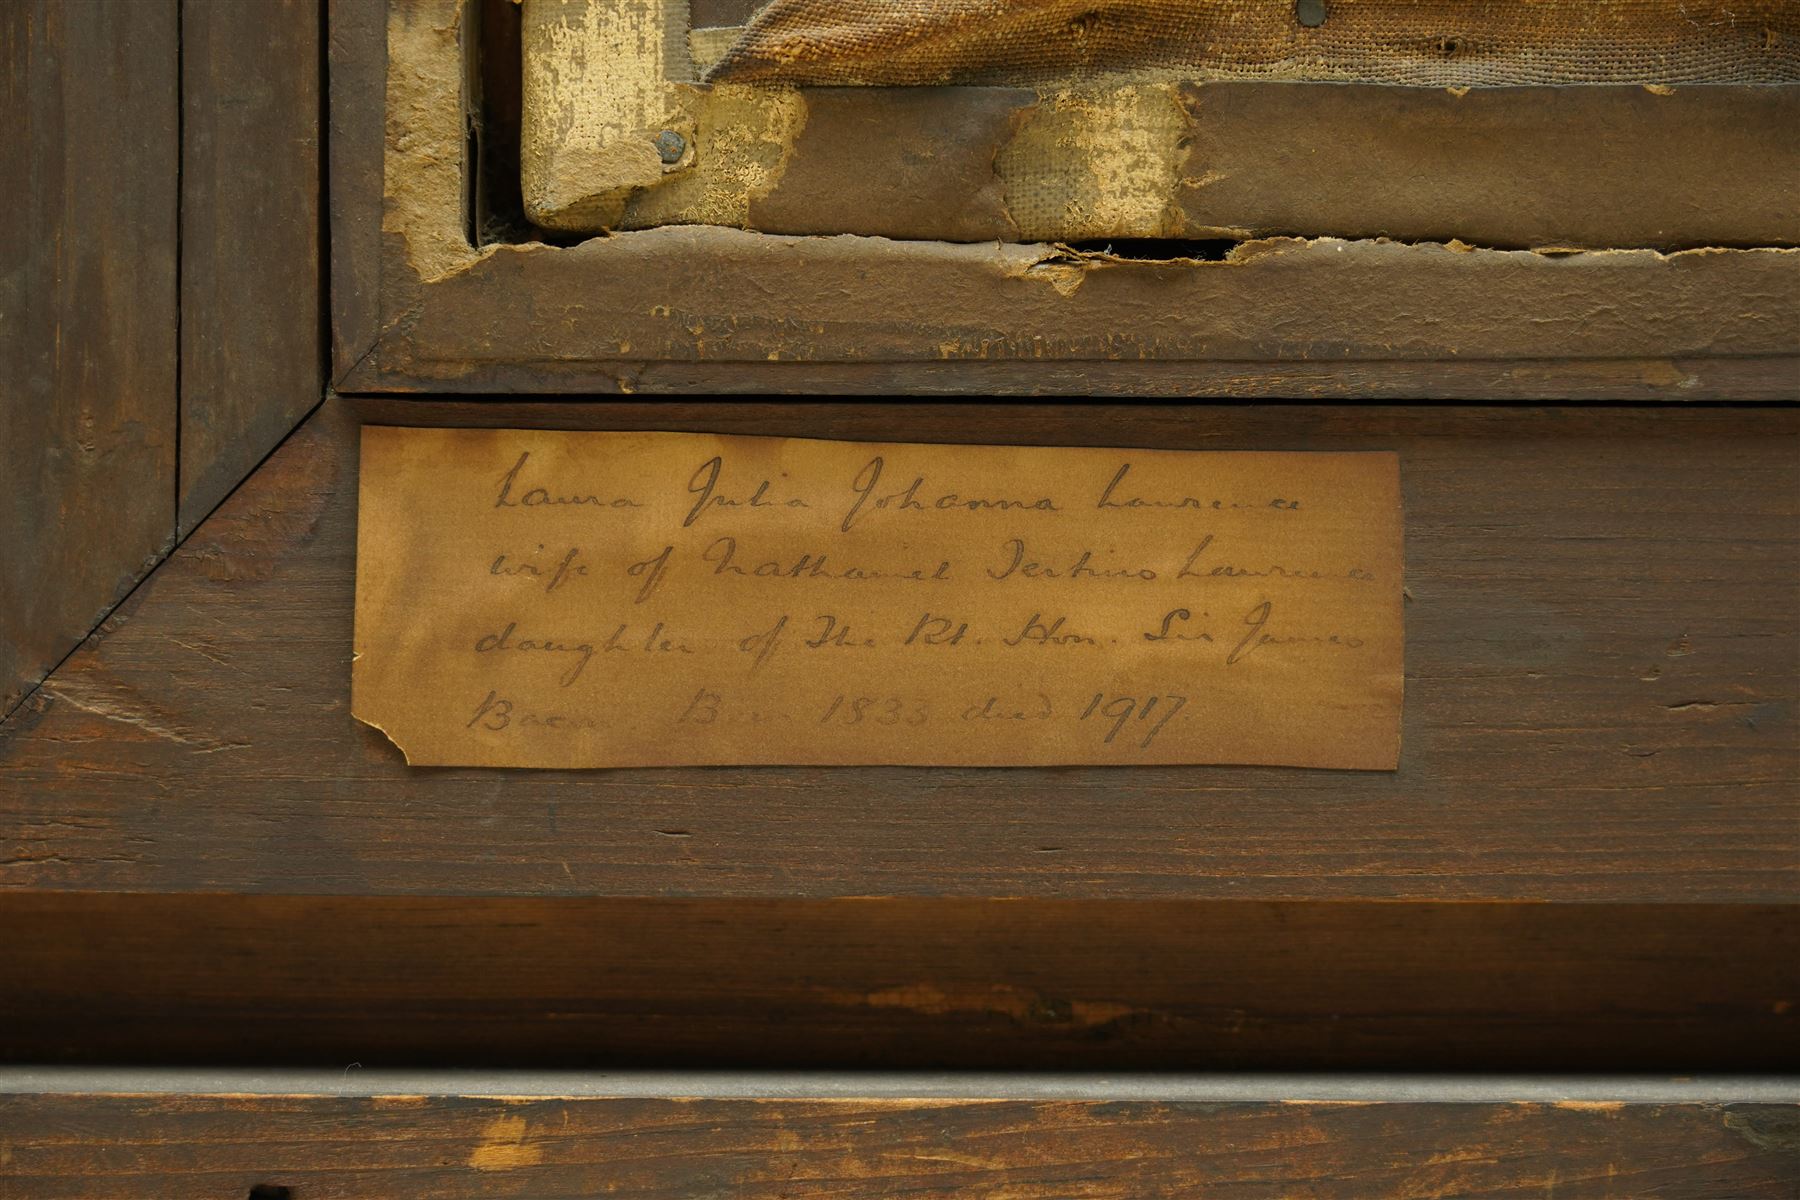 Laura Julia Johanna Lawrence
wife of Nathaniel Tertius Lawrence
daughter of The Rt. Hon. Sir James
Bacon Born 1833 died 1917.